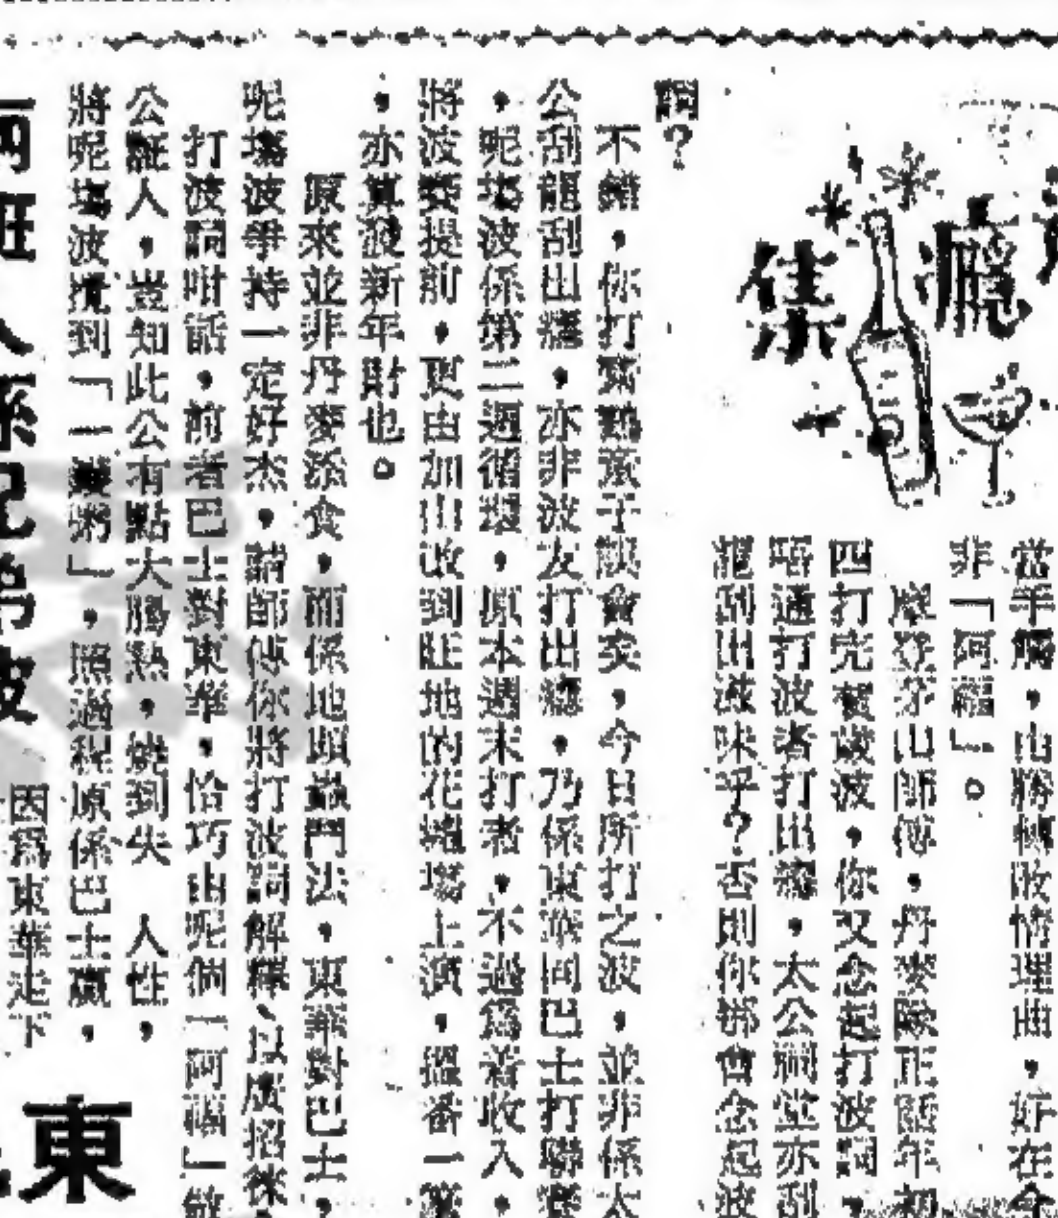 癮集
當手腳，由勝轉敗情理由，好在今
非「阿福」。
摩登茅山師傅，丹麥隊正話年初
四打完賀歲波，你又念起打波詞，
唔通打波者打出癮，太公祠堂亦刮
龍刮出滋味乎？否則你都會念起波
詞？
不錯，你打齋點意子誤會矣，今日所打之波，並非係太
公刮龍刮出癮，亦非波友打出癮，乃係東華同巴士打聯賽
，呢場波係第二週循環，原本週末打者，不過為着收入，
將波賽提前，更由加山改到旺地的花墟場上演，搵番一筆
，亦算發新年財也。
原來並非丹麥添食，而係地頭蟲鬥法，東華對巴士，
呢場波爭持一定好杰，請師傅你將打波詞解釋，以廣招徠
打波詞咁話，前者巴士對東華，恰巧由呢個「阿福」做
公証人，豈知此公有點大腸熱，燒到失 人性，
將呢場波攪到「一鑊粥」，照過程原係巴士贏，
因為東華走下
兩班人係死
東